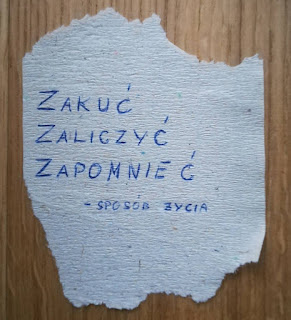 ZAKUĆ
ZALICZYĆ
ZAPOMNIEĆ
- SPOSÓB ŻYCIA